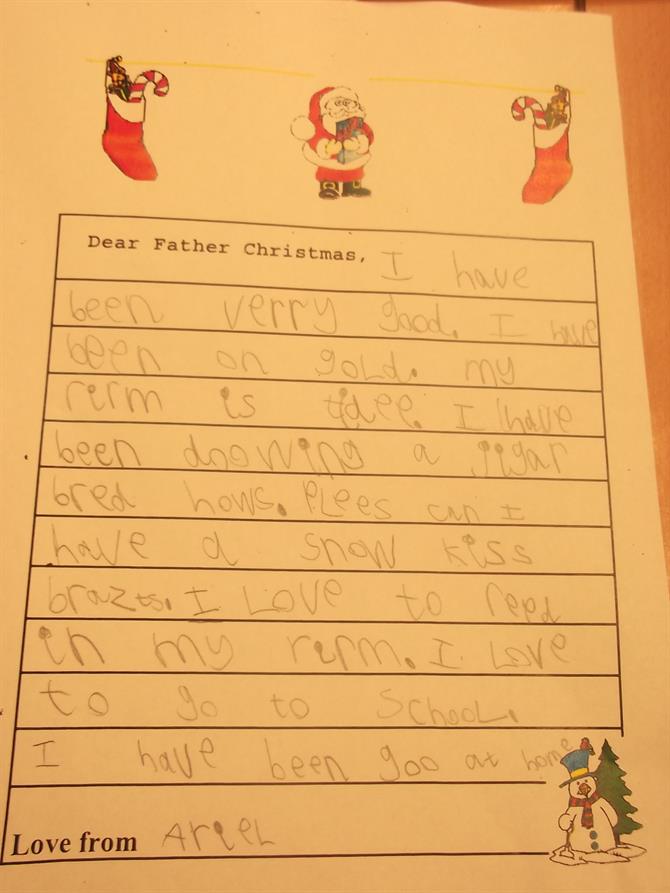 Dear Father Christmas, I have
been verry good. I have
been on gold. my
rirm is tidee. I have
been drowing a jigar
bred hows. PLees can I
have a snow kiss
brazts. I Love to reed
in my rirm. I Love
to go to School.
I have been goo at home
Love from ArieL